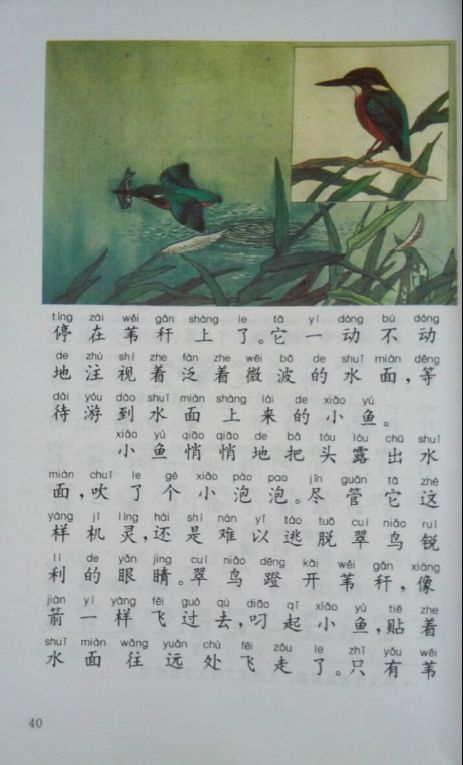 tíng zài wěi gǎn shàng le tā yí dòng bú dòng
停在苇秆上了。它一动不动
de zhù shì zhe fàn zhe wēi bō de shuǐ miàn děng
地注视着泛着微波的水面,等
dài yóu dào shuǐ miàn shàng lái de xiǎo yú
待游到水面上来的小鱼。
xiǎo yú qiāo qiāo de bǎ tóu lòu chū shuǐ
小鱼悄悄地把头露出水
miàn chuī le gè xiǎo pào pao jǐn guǎn tā zhè
面,吹了个小泡泡。尽管它这
yàng jī líng hái shì nán yǐ táo tuō cuì niǎo ruì
样机灵,还是难以逃脱翠鸟锐
lì de yǎn jing cuì niǎo dēng kāi wěi gǎn xiàng
利的眼睛。翠鸟蹬开苇秆,像
jiàn yí yàng fēi guò qù diāo qǐ xiǎo yú tiē zhe
箭一样飞过去,叼起小鱼,贴着
shuǐ miàn wǎng yuǎn chù fēi zǒu le zhǐ yǒu wěi
水面往远处飞走了。只有苇
40